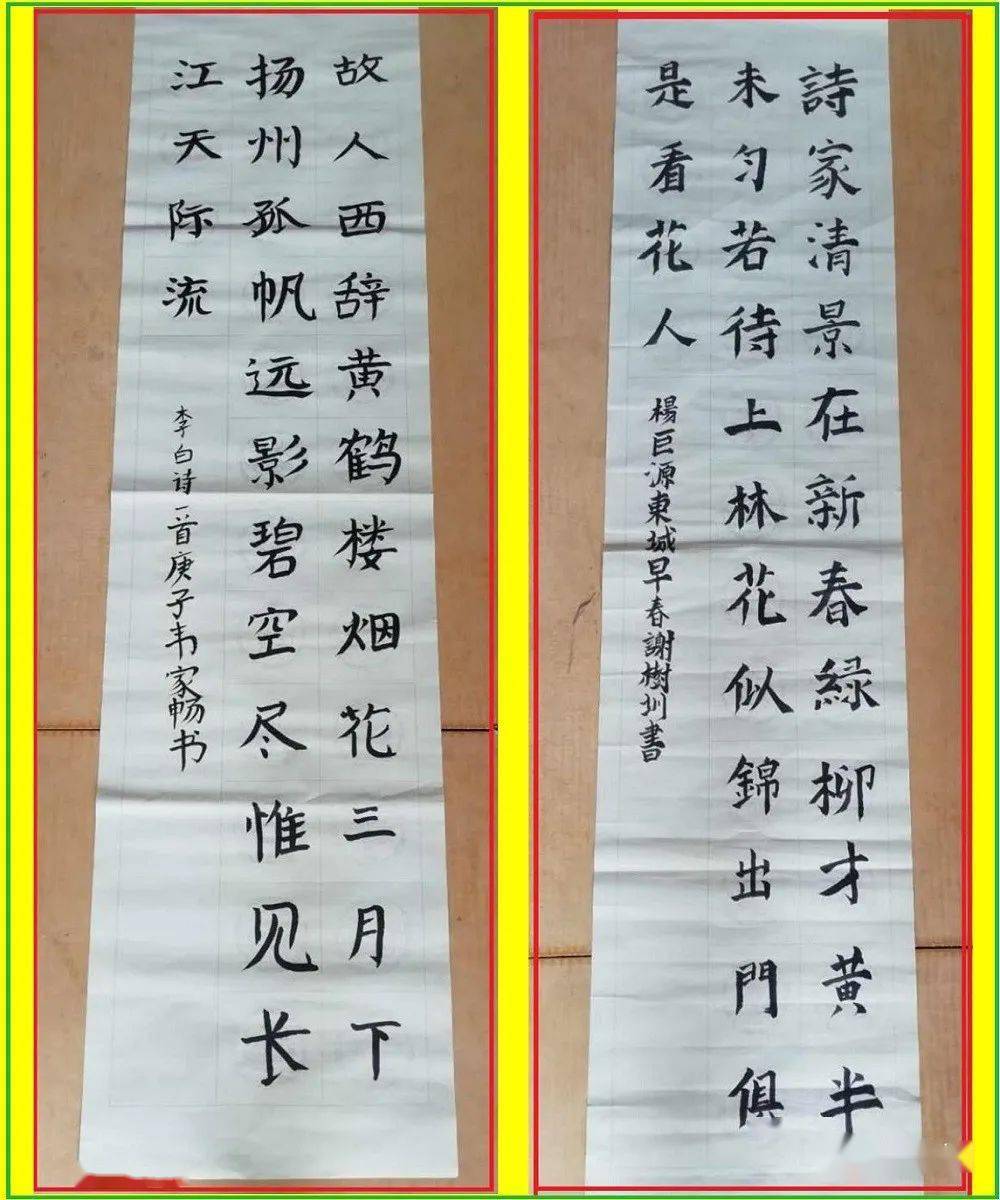 故人西辞黄鹤楼烟花三月下
扬州孤帆远影碧空尽惟见长
江天际流
李白诗一首庚子韦家畅书
詩家清景在新春緑柳才黄半
未匀若待上林花似錦出門俱
是看花人
楊巨源東城早春謝樹圳書